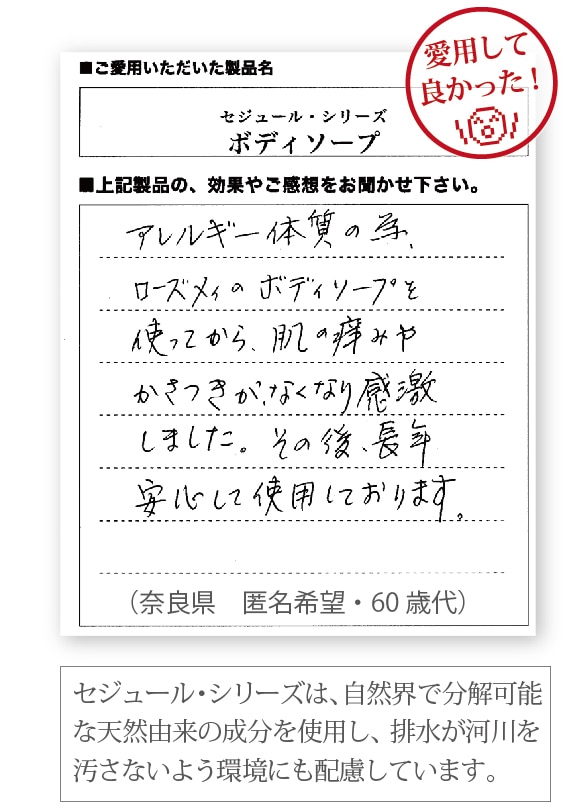 愛用して
良かった!
■ご愛用いただいた製品名
セジュール・シリーズ
ボディソープ
■上記製品の、効果やご感想をお聞かせ下さい。
アレルギー体質の為、
ローズメイのボディソープを
使ってから、肌の痒みや
かさつきが、なくなり感激
しました。その後、長年
安心して使用しております。
(奈良県 匿名希望・60歳代)
セジュール・シリーズは、自然界で分解可能
な天然由来の成分を使用し、排水が河川を
汚さないよう環境にも配慮しています。